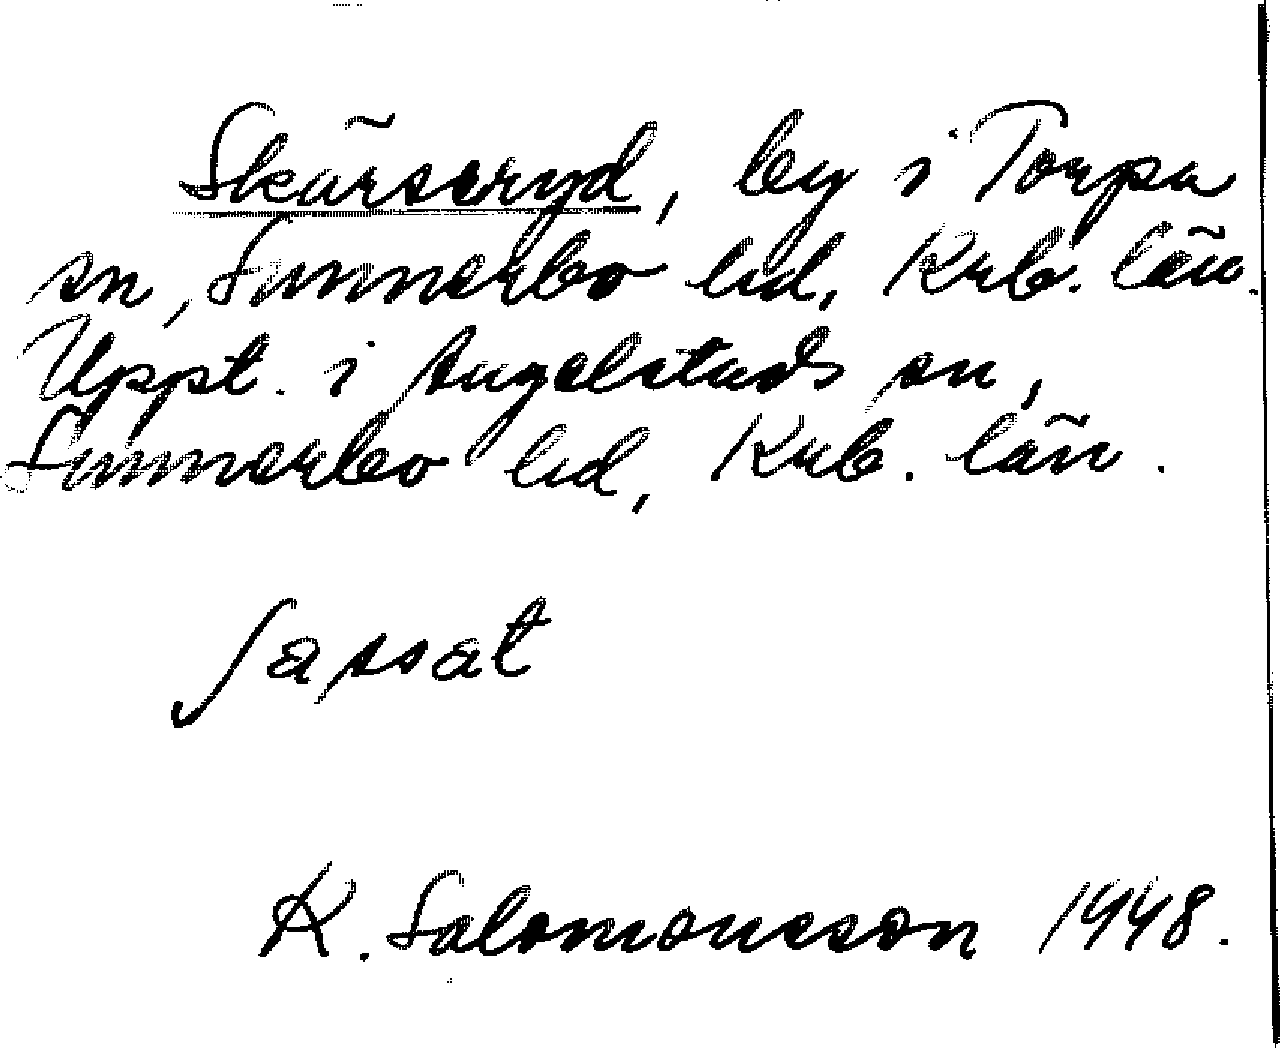 Skärseryd, by i Torpa
sn, Sunnerbo hd, Krb. län.
Uppt. i Angelstads sn,
Sunnerbo hd, Krb. län.
K. Salomonsson 1948.